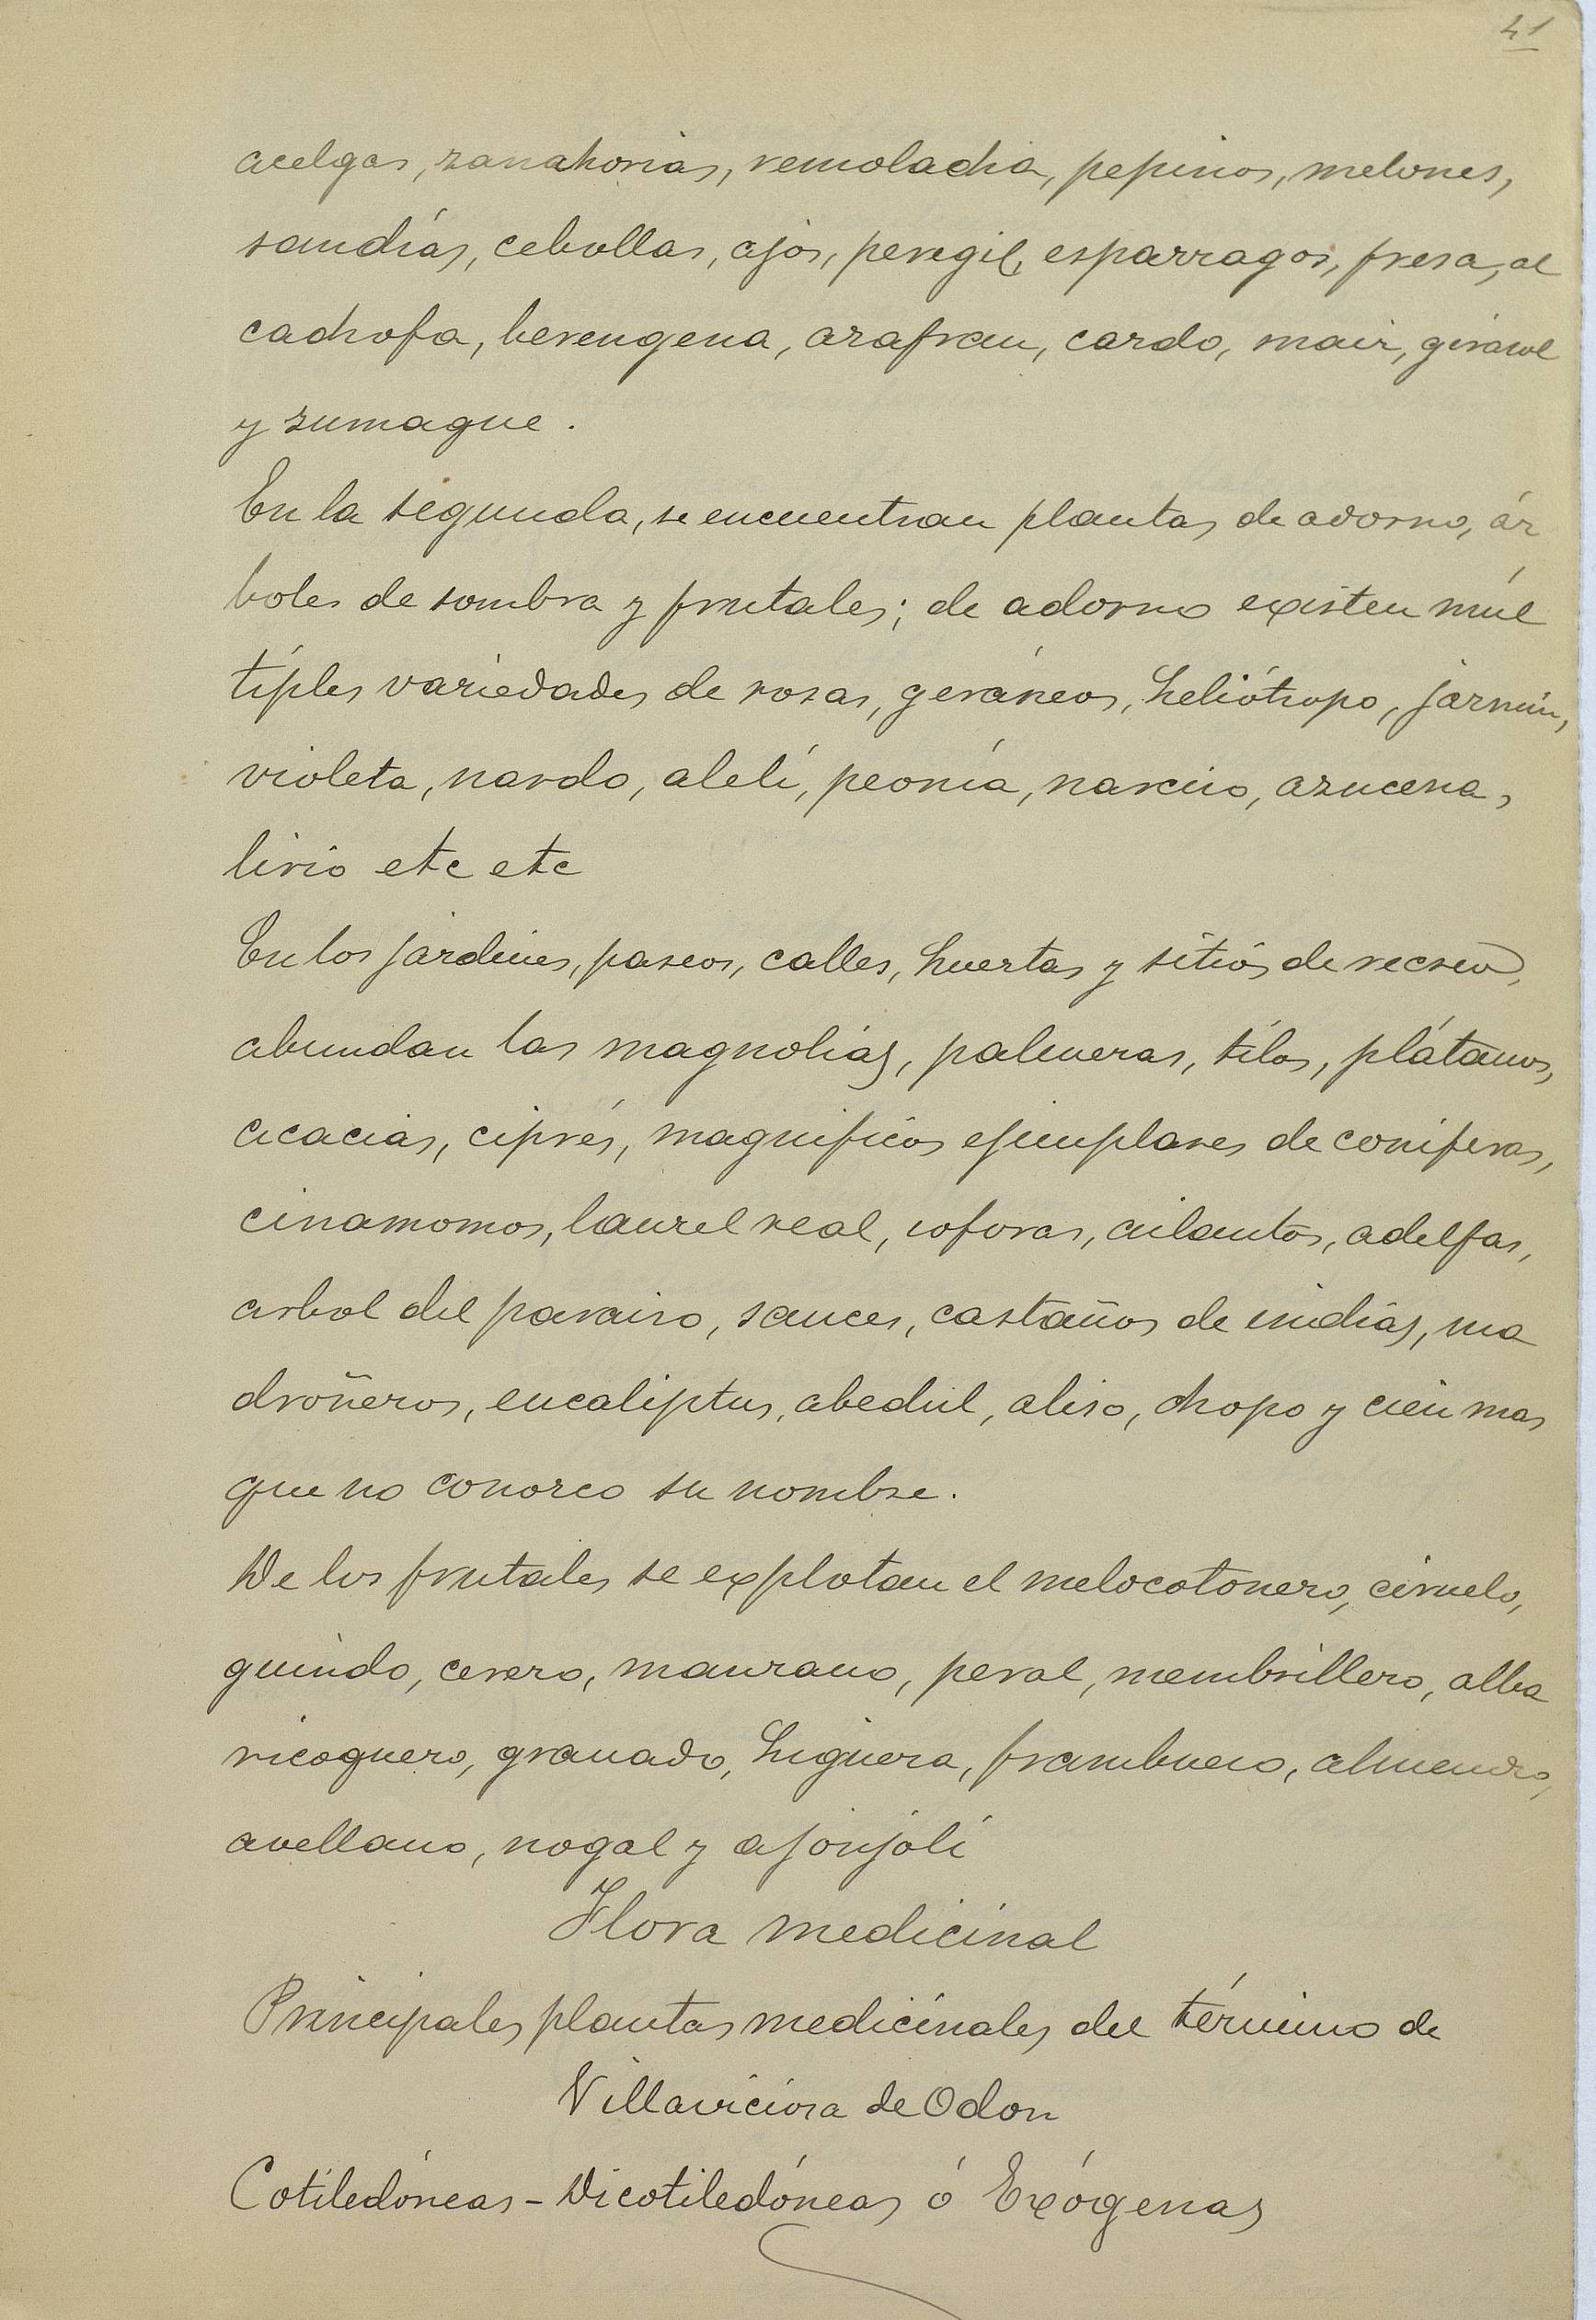 41
acelgas, zanahorias, remolacha, pepinos, melones,
sandías, cebollas, ajos, peregil, esparragos, fresa, al
cachofa, berengena, azafran, cardo, maiz, girasol
y zumaque.
En la segunda, se encuentran plantas de adorno, ár
boles de sombra y frutales; de adorno existen múl
tiples variedades de rosas, geráneos, heliótropo, jazmin,
violeta, nardo, alelí, peonía, narciso, azucena,
lirio etc etc
En los jardines, paseos, calles, huertas y sitios de recreo,
abundan las magnolias, palmeras, tilos, plátanos,
acacias, ciprés, magnificos ejemplares de coniferas,
cinamomos, laurel real, soforas, ailantos, adelfas,
arbol del paraiso, sauces, castaños de indias, ma
droñeros, eucaliptus, abedul, aliso, chopo y cien mas
que no conozco su nombre.
De los frutales se explotan el melocotonero, ciruelo,
guindo, cerezo, manzano, peral, membrillero, alba
ricoquero, granado, higuera, frambueso, almendro,
avellano, nogal y ajonjolí
Flora medicinal
Principales plantas medicinales del término de
Villaviciosa de Odon
Cotiledóneas - Dicotiledóneas ó Exógenas